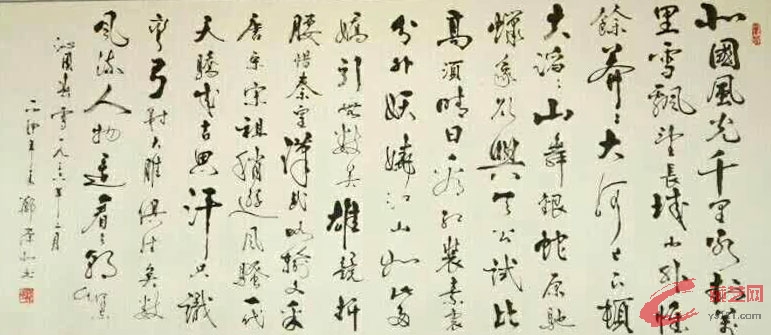 北國風光千里冰封萬
里雪飄望長城内外惟
餘莽々大河上下頓
失滔々山舞銀蛇原馳
蠟象欲與天公試比
高須晴日看紅裝素裹
分外妖嬈江山如此多
嬌引無數英雄競折
腰惜秦皇漢武略輸文采
唐宗宋祖稍遜風騷一代
天驕成吉思汗只識
彎弓射大雕俱往矣數
風流人物還看今朝
沁園春雪一九三六年二月